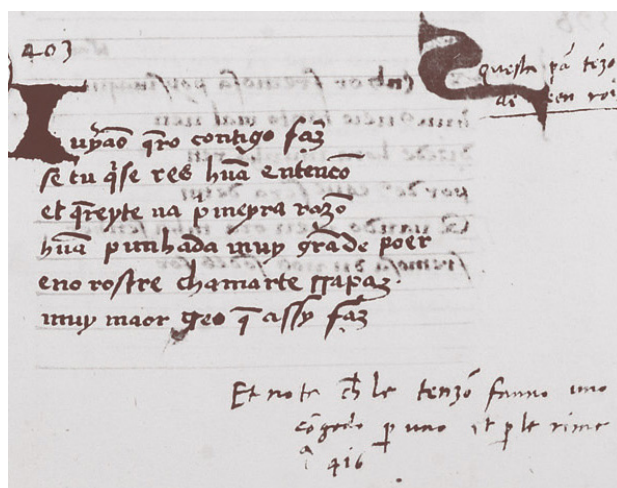 403
Iuyão q̃ro contigo faz̃
se tu q̃se res hũa entençõ
et q̃reyte na p meyra razõ
hũa punhada muy grãde poer
eno rostre chamarte rrapaz
muy maor q̃ assy faz̃
Questa
Et note ch̃ le tenzõ fanno uno
cõgedo p uno et p le rime
a 416